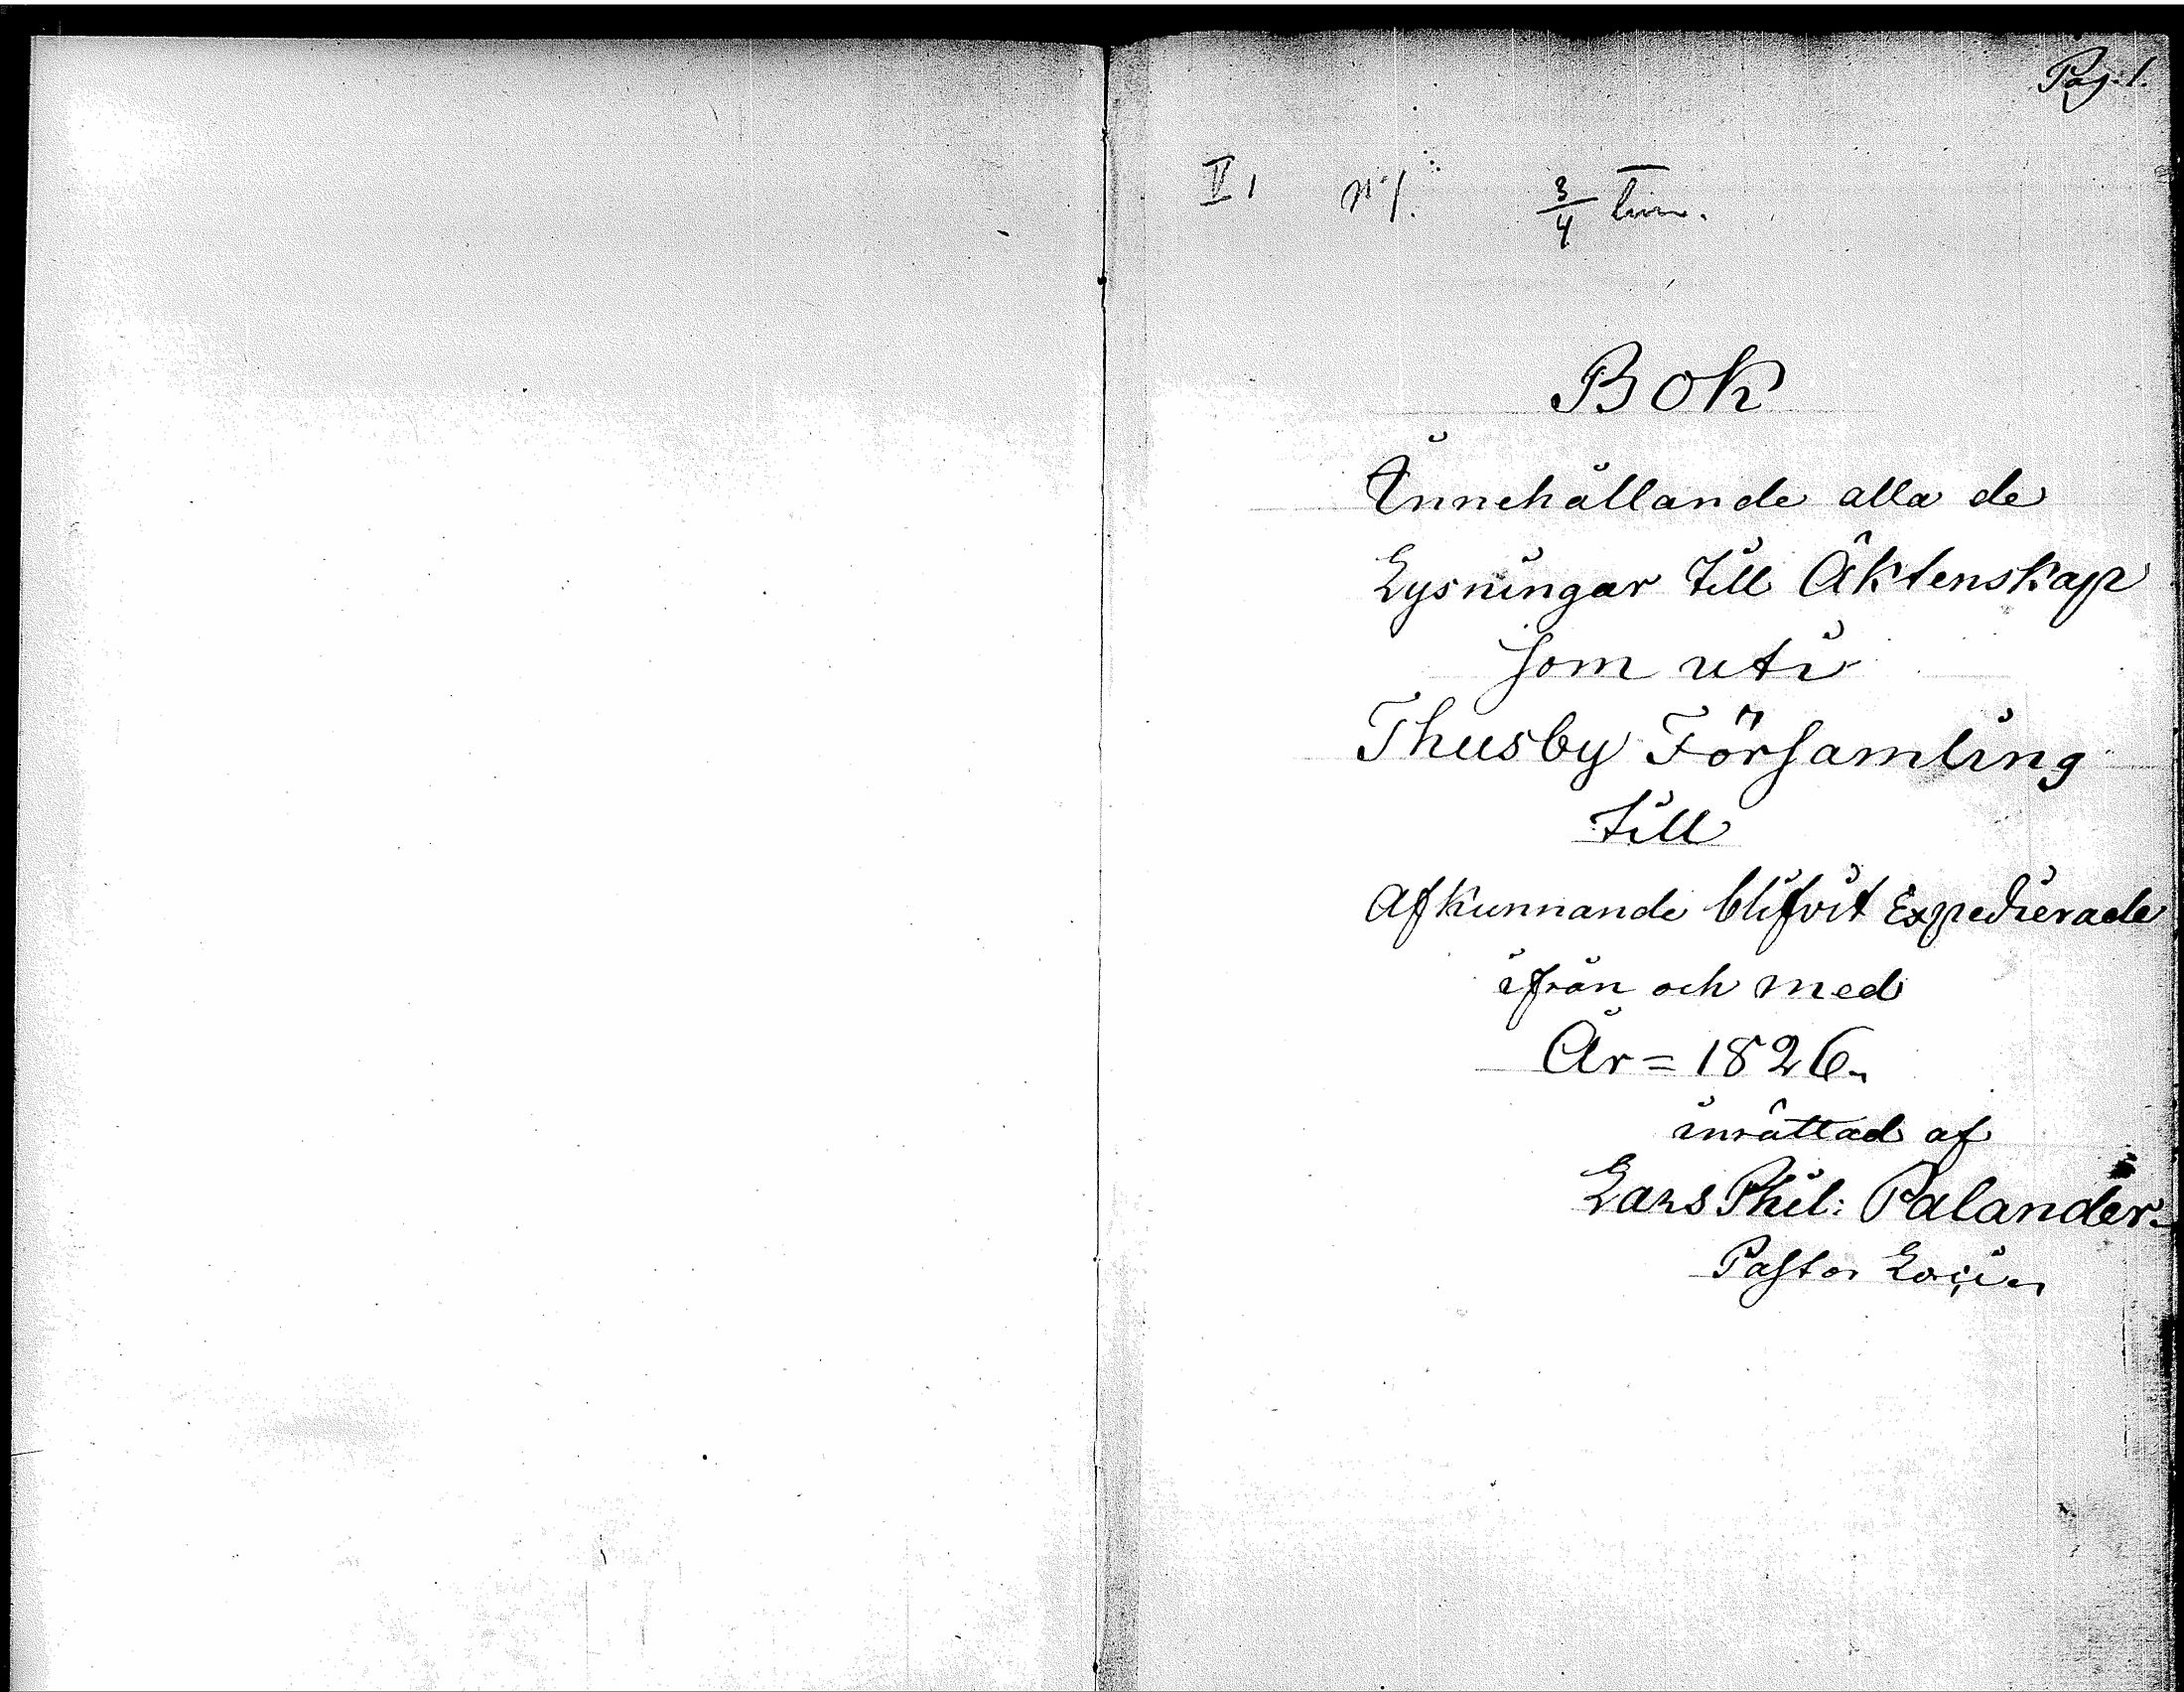 Pag. 1.
II 1 N:1. 3/4 tum.
Bok
Innehållande alla de
Lysningar till Äktenskap
som uti
Thusby Församling
till
Afkunnande blifvit Expedierade
ifrån och med
År = 1826.
inrättad af
Lars Phil: Palander.
Pastor Loci